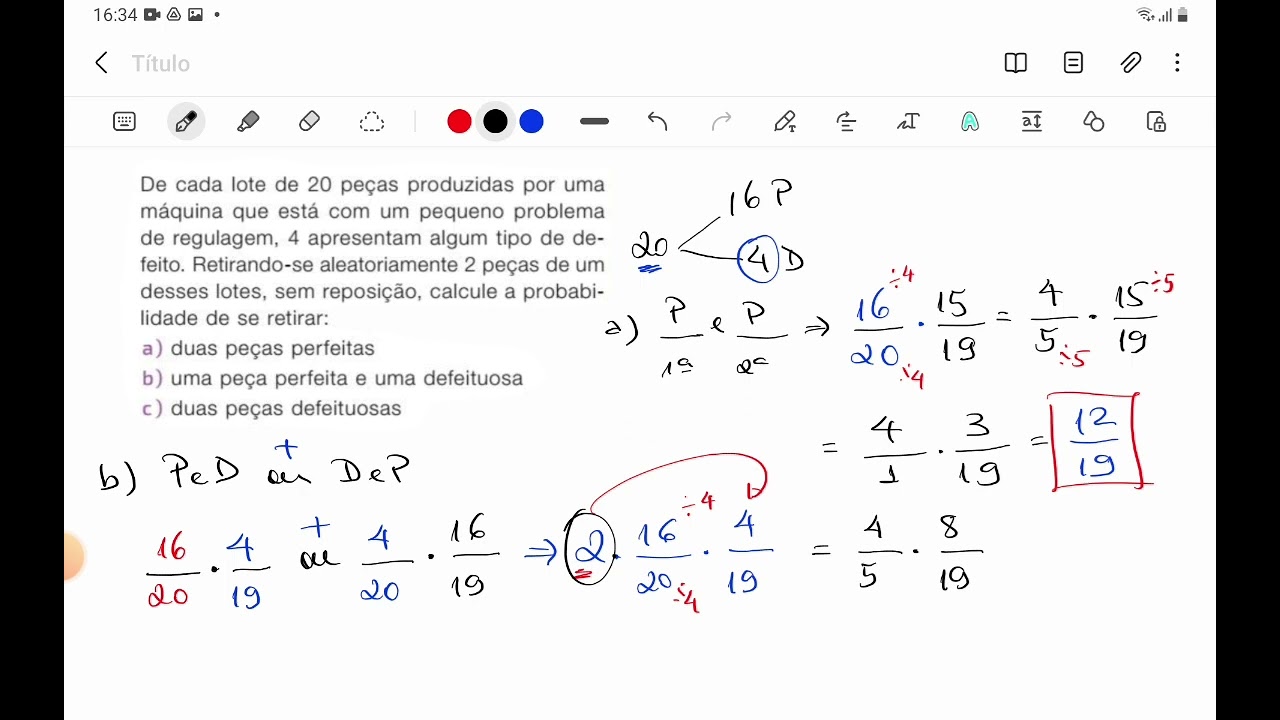 16:34
Título
De cada lote de 20 peças produzidas por uma
máquina que está com um pequeno problema
de regulagem, 4 apresentam algum tipo de de-
feito. Retirando-se aleatoriamente 2 peças de um
desses lotes, sem reposição, calcule a probabi-
lidade de se retirar:
a) duas peças perfeitas
b) uma peça perfeita e uma defeituosa
c) duas peças defeituosas
20 16 P
4 D
a) P/1ª e P/2ª ⇒ 16/20 ÷4 ÷4 · 15/19 = 4/5 ÷5 · 15/19 ÷5
= 4/1 · 3/19 = 12/19
b) P e D + ou D e P
16/20 · 4/19 + ou 4/20 · 16/19 ⇒ 2 · 16/20 ÷4 ÷4 · 4/19 = 4/5 · 8/19